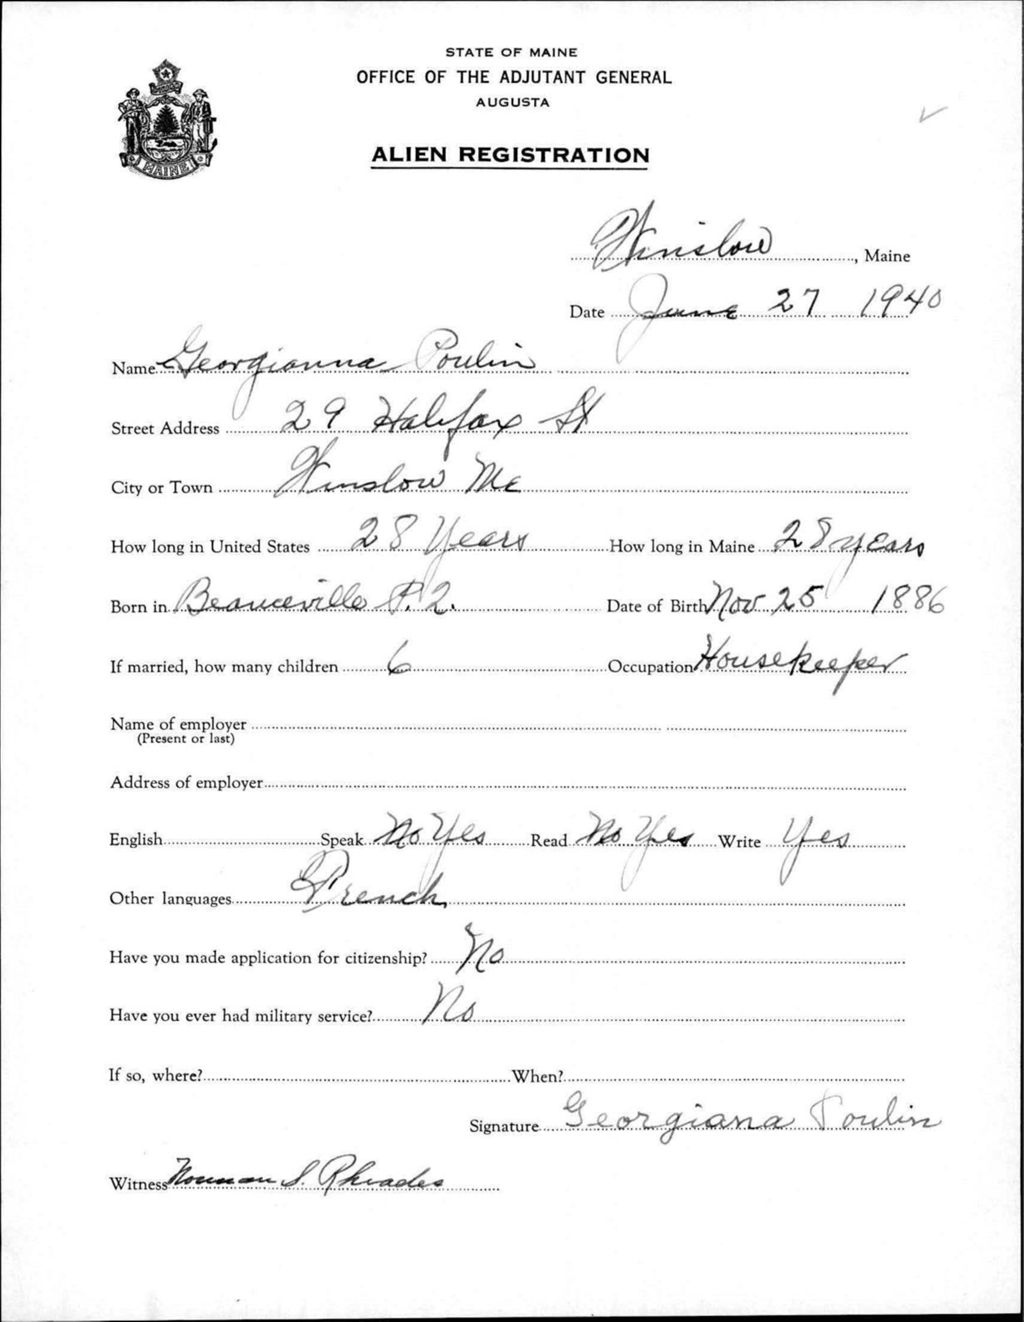 STATE OF MAINE
OFFICE OF THE ADJUTANT GENERAL
AUGUSTA
ALIEN REGISTRATION
MAINE
Winslow, Maine
Date June 27 1940
Name Georgianna Poulin
Street Address 29 Halifax St
City or Town Winslow Me
How long in United States 28 Years How long in Maine 28 years
Born in Beauceville P.Q. Date of Birth Nov 25 1886
If married, how many children 6 Occupation Housekeeper
Name of employer
(Present or last)
Address of employer
English Speak No Yes Read No Yes Write Yes
Other languages French
Have you made application for citizenship? No
Have you ever had military service? No
If so, where? When?
Signature Georgiana Poulin
Witness Norman S. Rhoades